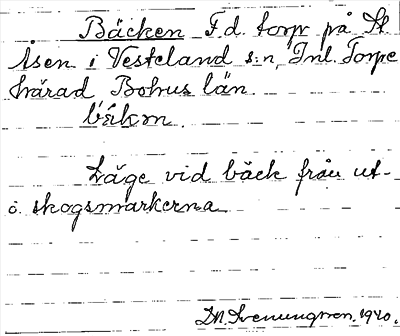 Bäcken F.d. torp på St
Åsen i Vesteland s:n, Inl. Torpe
härad Bohus län.
bä̀km.
Läge vid bäck från ut-
ö skogsmarkerna
D.A. Svenungsson. 1920.